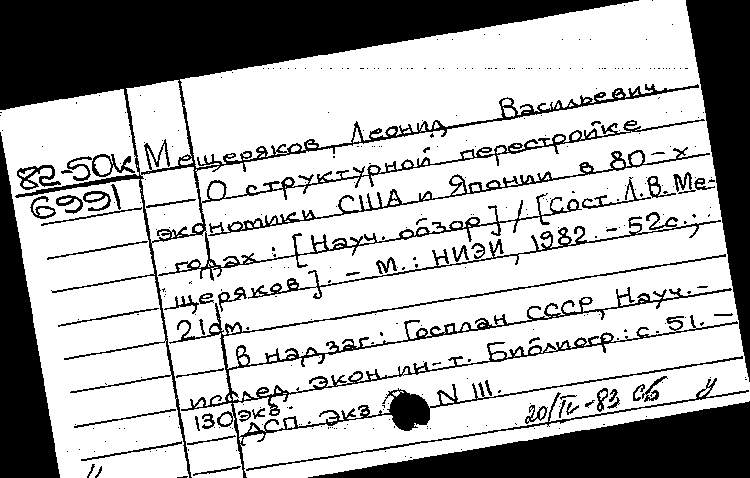 82-50к
6991
Мещеряков, Леонид Васильевич.
О структурной перестройке
экономики США и Японии в 80-х
годах : [Науч. обзор] / [Сост. Л.В. Ме-
щеряков]. - М. : НИЭИ, 1982. - 52с.;
21см.
В надзаг.: Госплан СССР, Науч.-
исслед. экон. ин-т. Библиогр.: с. 51. -
130 экз.
ДСП. Экз. N 111.
20/IV-83 Сб